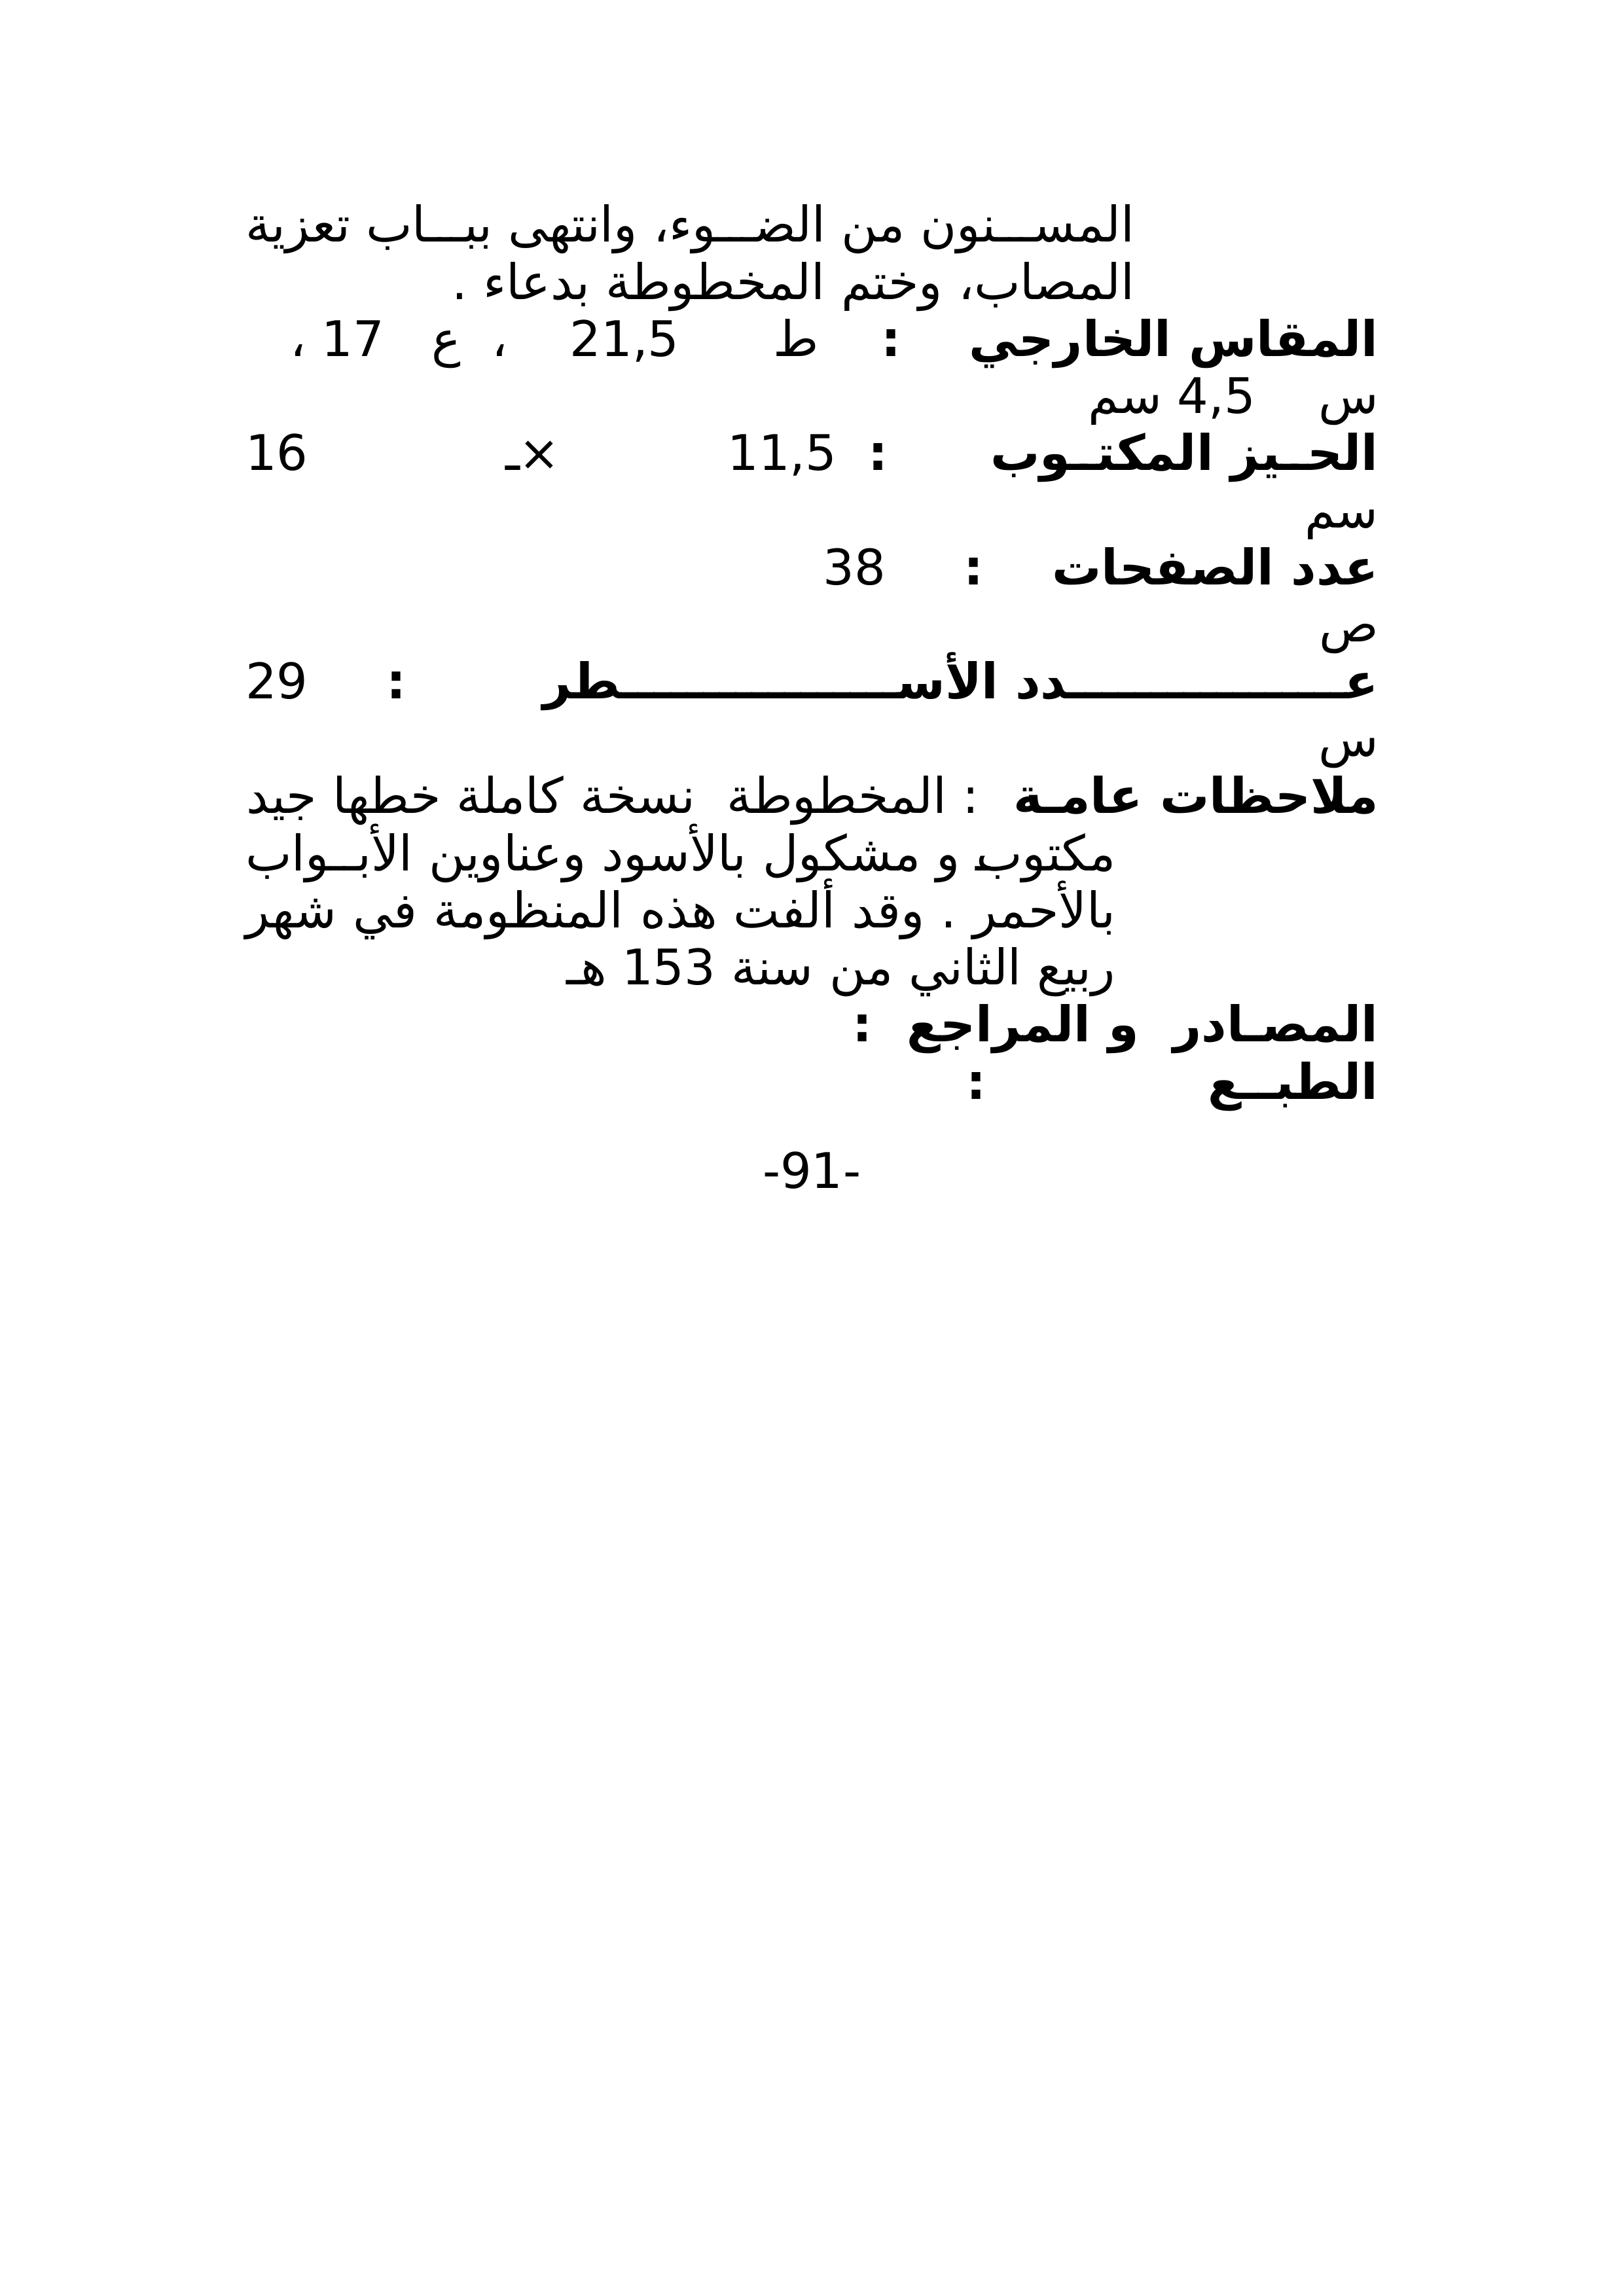 المســنون من الضــوء، وانتهى ببــاب تعزية
المصاب، وختم المخطوطة بدعاء .
المقاس الخارجي : ط 21,5 ، ع 17 ،
س 4,5 سم
الحــيز المكتــوب : 11,5 ×ـ 16
سم
عدد الصفحات : 38
ص
عــــــــــــــــدد الأســــــــــــــــطر : 29
س
ملاحظات عامـة : المخطوطة نسخة كاملة خطها جيد
مكتوبـ و مشكول بالأسود وعناوين الأبــواب
بالأحمر . وقد ألفت هذه المنظومة في شهر
ربيع الثاني من سنة 153 هـ
المصـادر و المراجع :
الطبــع :
-91-